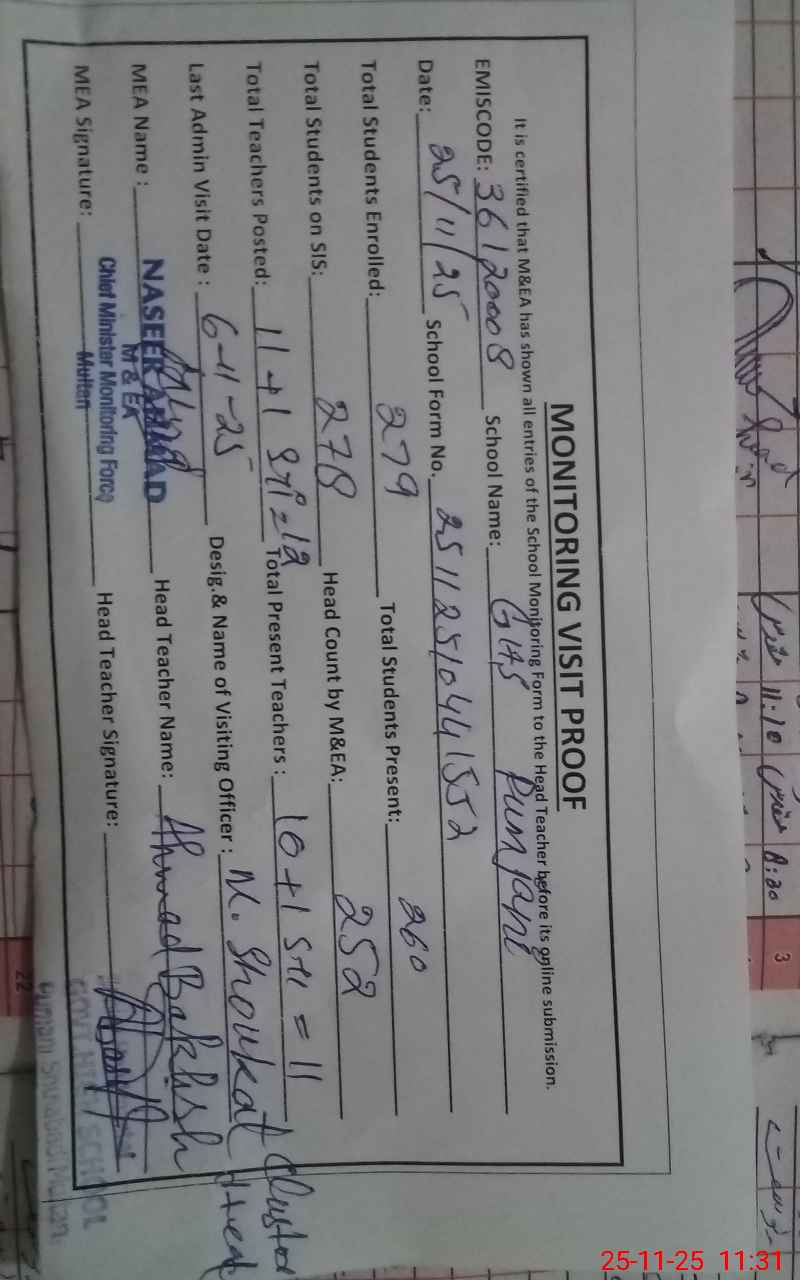 MONITORING VISIT PROOF
It is certified that M&EA has shown all entries of the School Monitoring Form to the Head Teacher before its online submission.
EMISCODE: 36120008 School Name: GHS Punjani
Date: 25/11/25 School Form No. 251125104441552
Total Students Enrolled: 279 Total Students Present: 260
Total Students on SIS: 278 Head Count by M&EA: 252
Total Teachers Posted: 11+1 STI=12 Total Present Teachers: 10+1 STI = 11
Last Admin Visit Date: 6-11-25 Desig.& Name of Visiting Officer: M. Shoukat Cluster Head
MEA Name: NASEER AHMAD Head Teacher Name: Ahmad Bakhsh
M & EA
Chief Minister Monitoring Force
Multan
MEA Signature: Head Teacher Signature:
SCHOOL
11:10
8:30
3
22
25-11-25 11:31